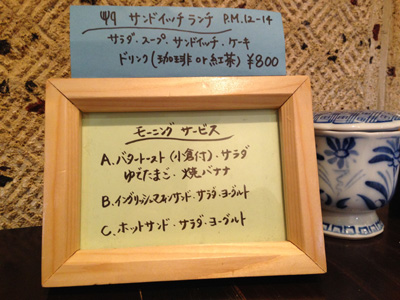 サンドイッチランチ P.M.12-14
サラダ・スープ・サンドイッチ・ケーキ
ドリンク(珈琲 or 紅茶) ¥800
モーニング サービス
A. バタートースト(小倉付)・サラダ
ゆでたまご・焼バナナ
B. イングリッシュマフィンサンド・サラダ・ヨーグルト
C. ホットサンド・サラダ・ヨーグルト